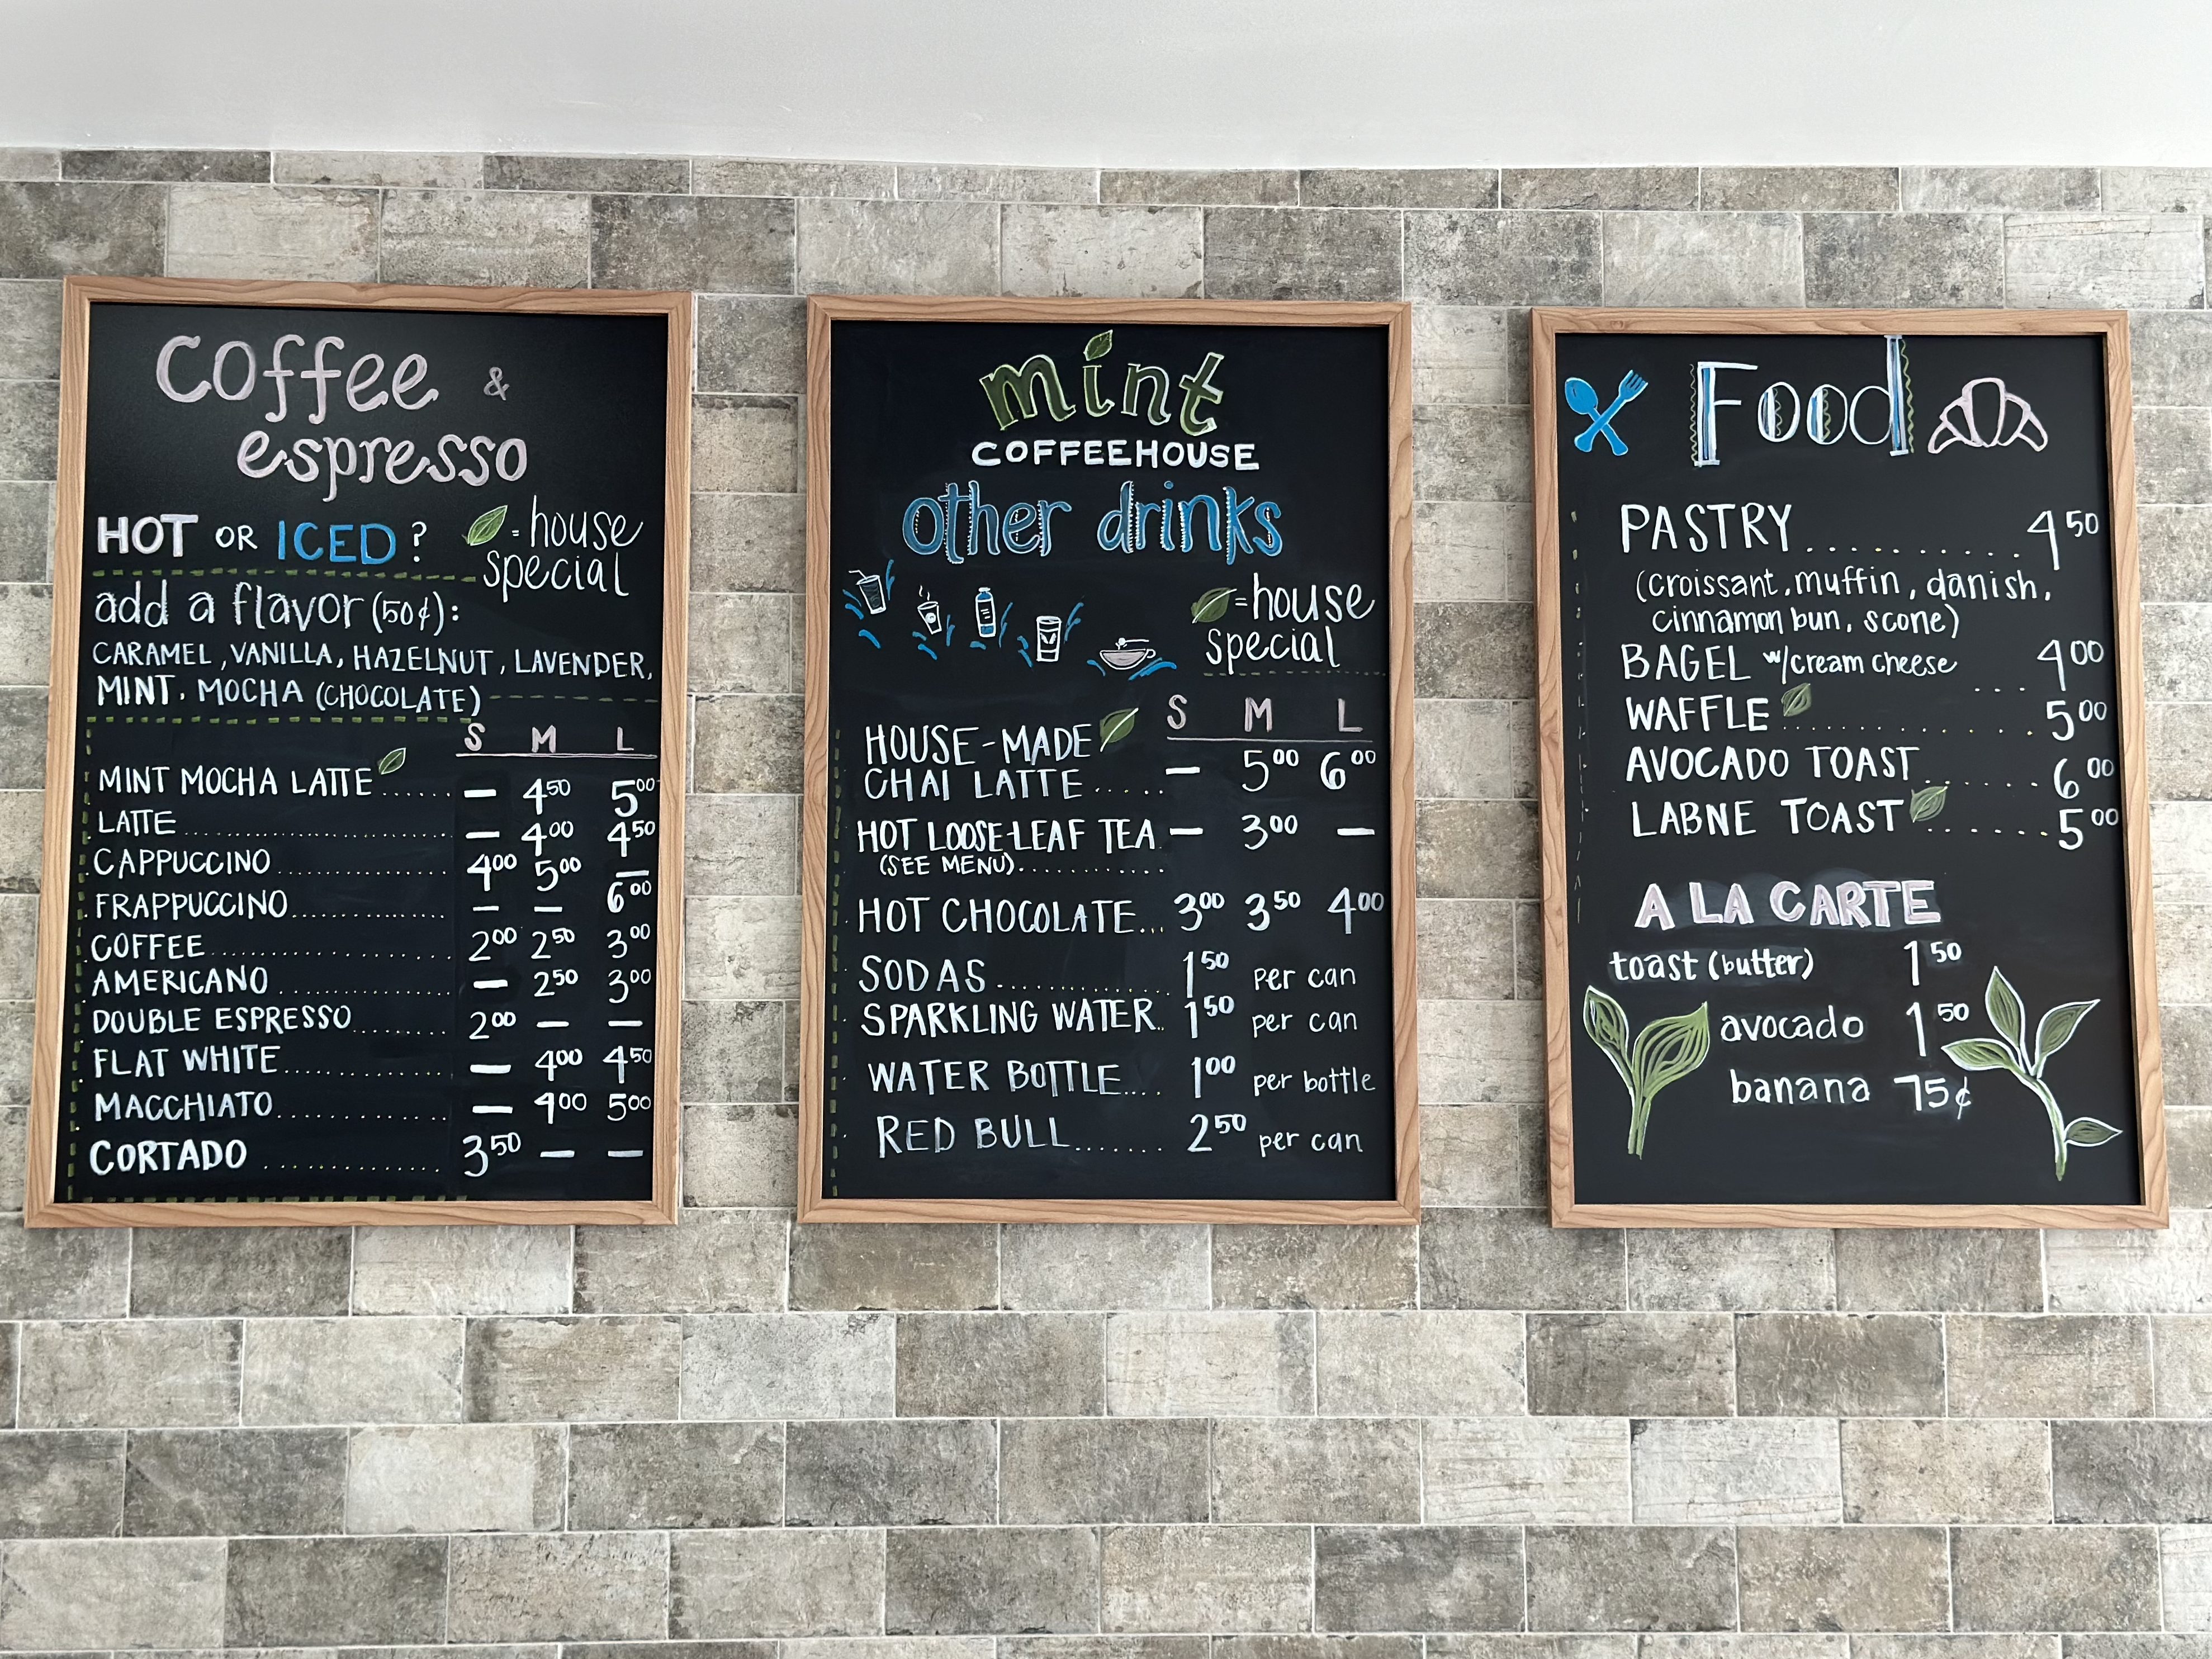 coffee &
espresso
HOT OR ICED ? = house
special
add a flavor (50¢):
CARAMEL, VANILLA, HAZELNUT, LAVENDER,
MINT, MOCHA (CHOCOLATE)
S M L
MINT MOCHA LATTE...... — 4.50 5.00
LATTE...... — 4.00 4.50
CAPPUCCINO 4.00 5.00 —
FRAPPUCCINO...... — — 6.00
COFFEE...... 2.00 2.50 3.00
AMERICANO...... — 2.50 3.00
DOUBLE ESPRESSO...... 2.00 — —
FLAT WHITE...... — 4.00 4.50
MACCHIATO...... — 4.00 5.00
CORTADO...... 3.50 — —
mint
COFFEEHOUSE
other drinks
= house
special
S M L
HOUSE-MADE
CHAI LATTE..... — 5.00 6.00
HOT LOOSE-LEAF TEA. — 3.00 —
(SEE MENU)............
HOT CHOCOLATE... 3.00 3.50 4.00
SODAS............ 1.50 per can
SPARKLING WATER.. 1.50 per can
WATER BOTTLE.... 1.00 per bottle
RED BULL....... 2.50 per can
Food
PASTRY.......... 4.50
(croissant, muffin, danish,
cinnamon bun, scone)
BAGEL w/cream cheese ... 4.00
WAFFLE............ 5.00
AVOCADO TOAST...... 6.00
LABNE TOAST....... 5.00
A LA CARTE
toast (butter) 1.50
avocado 1.50
banana 75¢